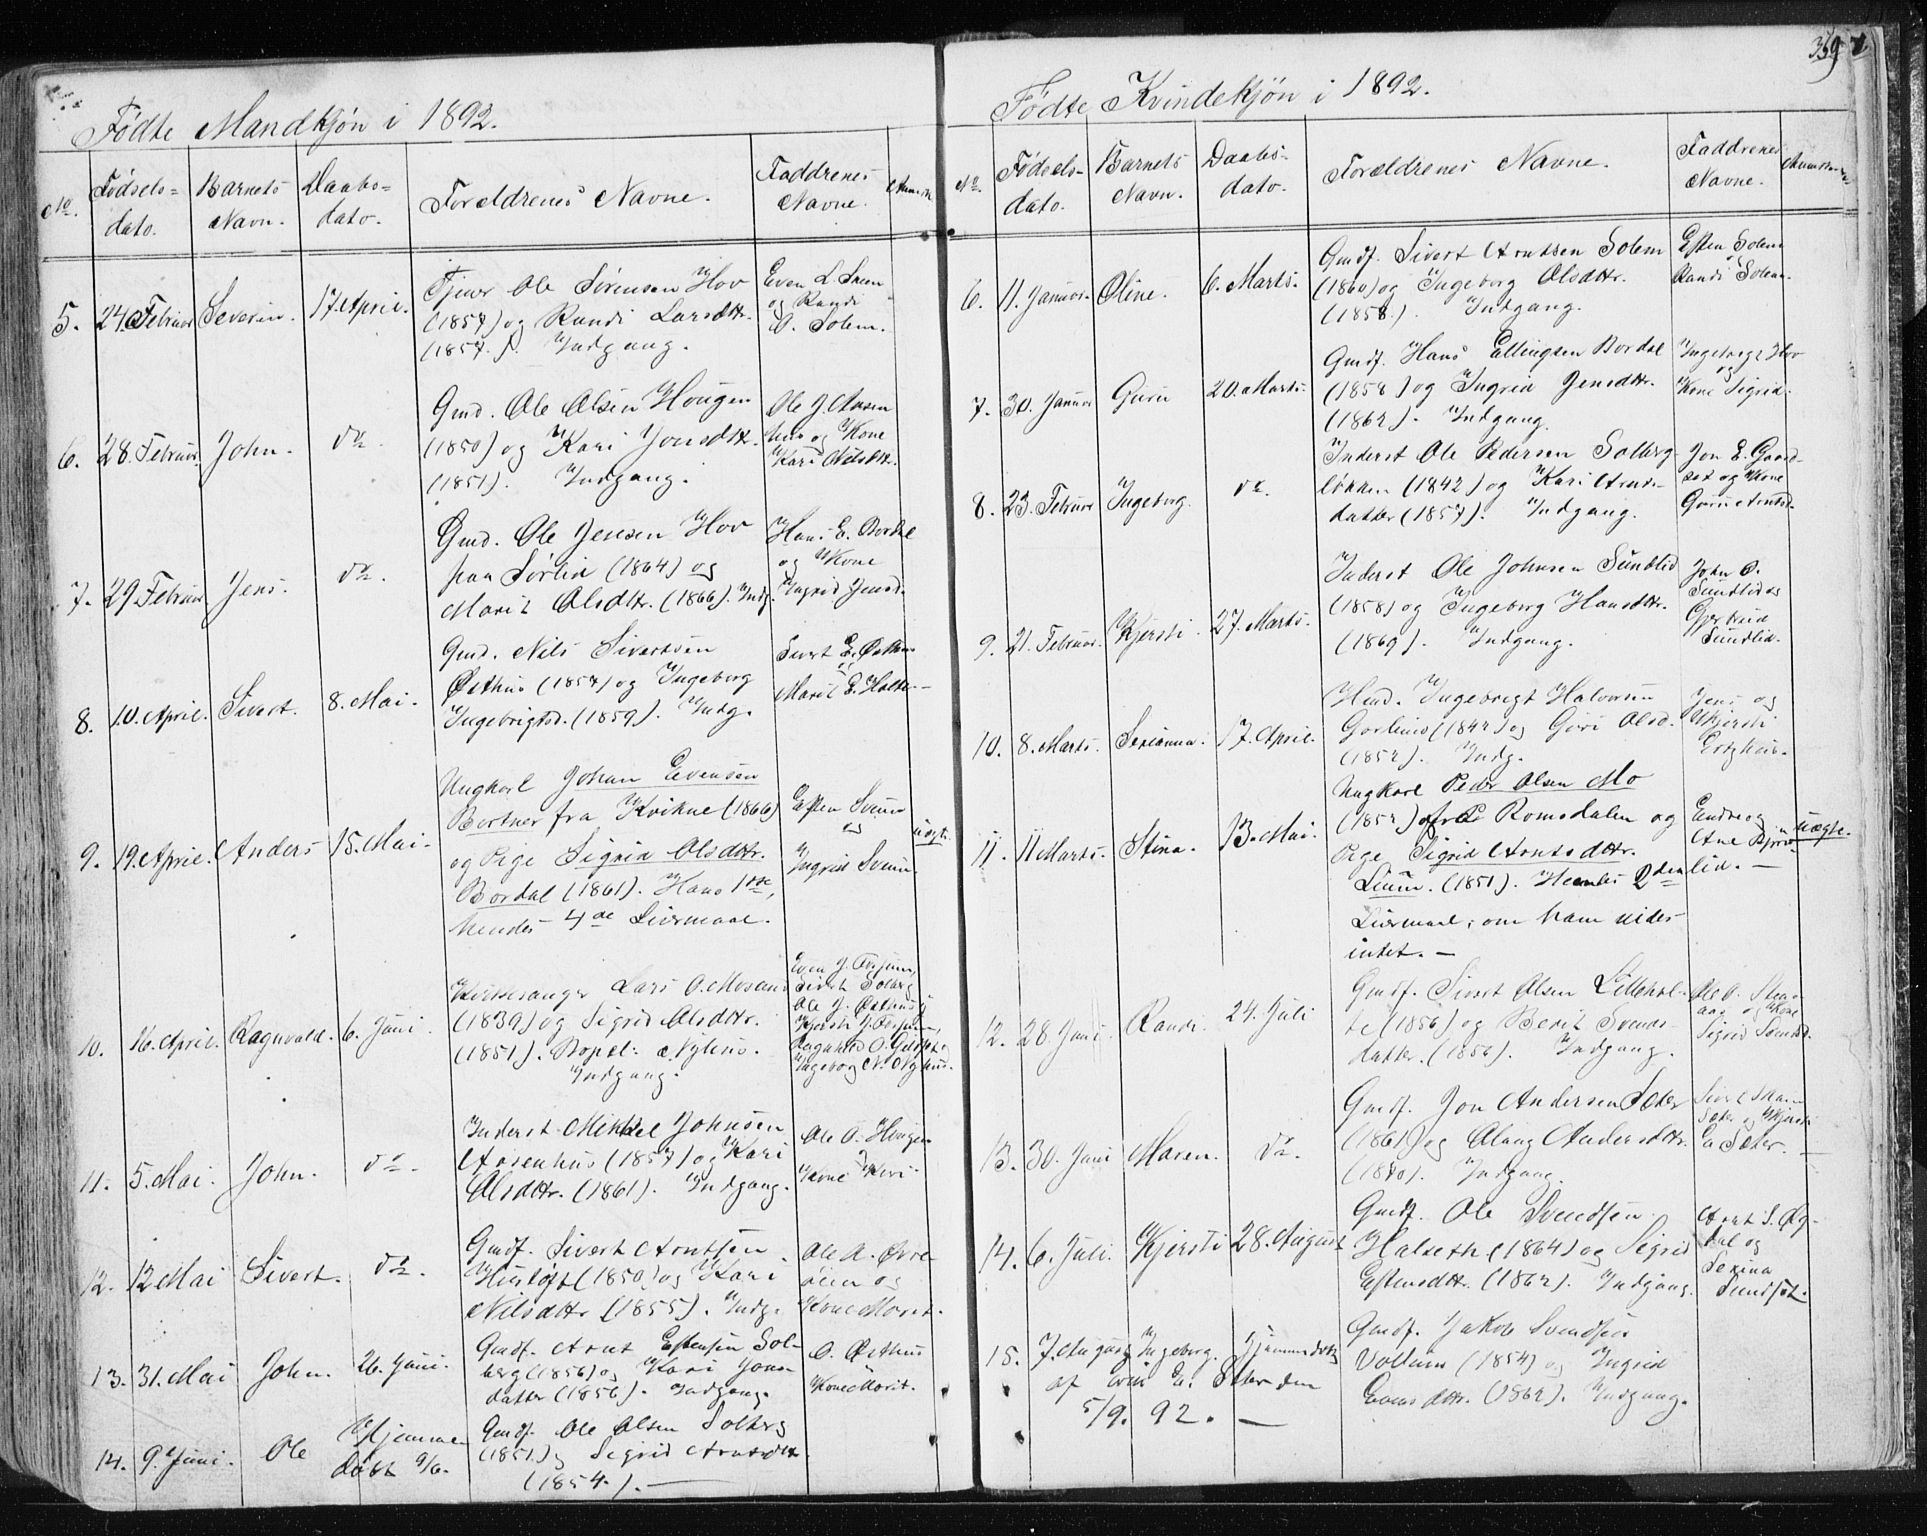 Fødte Mandkjøn i 1892.
No.
Fødsels-
dato.
Barnets
Navn.
Daabs-
dato.
Forældrenes Navne.
Faddrenes
Navne.
5. 24. Februar Severin. 17. April.
Tjener Ole Sørensen Hov
(1857) og Randi Larsdttr.
(1857.). Indgang.
Even L. Svem
og Randi
O. Solem.
6. 28. Februar. John. do.
Gmd. Ole Olsen Hougen
(1850) og Kari Jonsdttr.
(1851). Indgang.
Ole J. Aasen
hus og Kone
Kari Nilsdttr.
7. 29. Februar Jens. do.
Gmd. Ole Jensen Hov
paa Sørlia (1864) og
Marit Olsdttr. (1866). Indg.
Hans E. Bordal
og Kone
Ingrid Jensd.
8. 10. April. Sivert. 8. Mai.
Gmd. Nils Sivertsen
Østhus (1857) og Ingeborg
Ingebrigtsd. (1859). Indg.
Sivert E. Østhus
Marit E. Halte.
9. 19. April. Anders 15. Mai.
Ungkarl Johan Evensen
Bortner fra Kvikne (1866)
og Pige Sigrid Olsdttr.
Bordal (1861). Hans 1ste,
hendes 4de Leiermaal.
Esten Svem
og
Ingrid Svem.
uægt.
10. 16. April. Ragnvald. 6. Juni.
Kirkesanger Lars O. Mosand
(1839) og Sigrid Olsdttr.
(1851). Bopæl: Nyhus.
Indgang.
Even J. Forsem,
Sivert Solberg
Ole J. Østhus,
Kjersti J. Forsem,
Ingeborg N. Nyhus.
11. 5. Mai. John. do.
Inderst Mikkel Johnsen
Aasenhus (1857) og Kari
Olsdttr. (1861). Indgang.
Ole O. Hougen
Kone Kari.
12. 12 Mai Sivert. do.
Gmdf. Sivert Arntsen
(1850) og Kari
Nilsdttr. (1855). Indg.
Ole A. Øvre-
Kone Marit.
13. 31. Mai John. 26. Juni.
Gmdf. Arnt Estensen Sol-
berg (1856) og Kari Jons-
datter (1856). Indgang.
O. Østhus
Kone Marit.
14. 9. Juni. Ole Hjemme-
døbt 9/6.
Gmdf. Ole Olsen Solberg
(1851) og Sigrid Arntsdttr.
(1854.).
Fødte Kvindekjøn i 1892.
No.
Fødsels-
dato.
Barnets
Navn.
Daabs-
dato.
Forældrenes Navne.
Faddrenes
Navne.
6. 11. Januar. Oline. 6. Marts.
Gmdf. Sivert Arntsen Solem
(1860) og Ingeborg Olsdttr.
(1858.). Indgang.
Esten Solem
Randi Solem.
7. 30. Januar Guru 20. Marts.
Gmdf. Hans Ellingsen Bordal
(1858) og Ingrid Jensdttr.
(1862). Indgang.
Ingebrigt Hov
og
Kone Sigrid.
8. 23. Februar Ingeborg. do.
Inderst Ole Pedersen Solberg-
løkken (1842) og Kari Arnts-
datter (1857). Indgang.
Jon E. Gaard-
set og Kone
Guru Arntsd.
9. 21. Februar. Kjersti. 27. Marts.
Inderst Ole Johnsen Sundlid
(1858) og Ingeborg Hansdttr.
(1869). Indgang.
John O.
Sundlid og
Gjertrud
Sundlid.
10. 8. Marts. Serianna. 17. April.
Ingebrigt Halvorsen
og Guri Olsd.
(1852). Indg.
Jens og
Kjersti
11. 11 Marts. Stina. 13. Mai.
Ungkarl Peder Olsen Mo
(1852) fra Romsdalen og
Pige Sigrid Arntsdttr.
(1851). Hendes 2den
Leiermaal; om ham vides
intet. —
Endre og
Ane Bjørn-
lid. —
uægte.
12. 28. Juni. Randi. 24. Juli
Gmdf. Sivert Olsen Littlehal-
te (1856) og Berit Svends-
datter. (1856). Indgang.
Ole O. Sten-
aas og Kone
Sigrid Svendsd.
13. 30. Juni Maren. do.
Gmdf. Jon Andersen Sæter
(1861) og Olaug Andersdttr.
(1870). Indgang.
14. 6. Juli. Kjersti 28. August
Gmdf. Ole Svendsen
Halseth (1864) og Sigrid
Estensdttr. (1862). Indgang.
Arnt S. Øg-
dal og
Serina
Sundset.
15. 7. August Ingeborg. Hjemmedøbt
af Erik E. Sæter den
5/9. 92. —
Gmdf. Jakob Svendsen
Voltum (1854) og Ingrid
Evensdttr. (1862). Indgang.